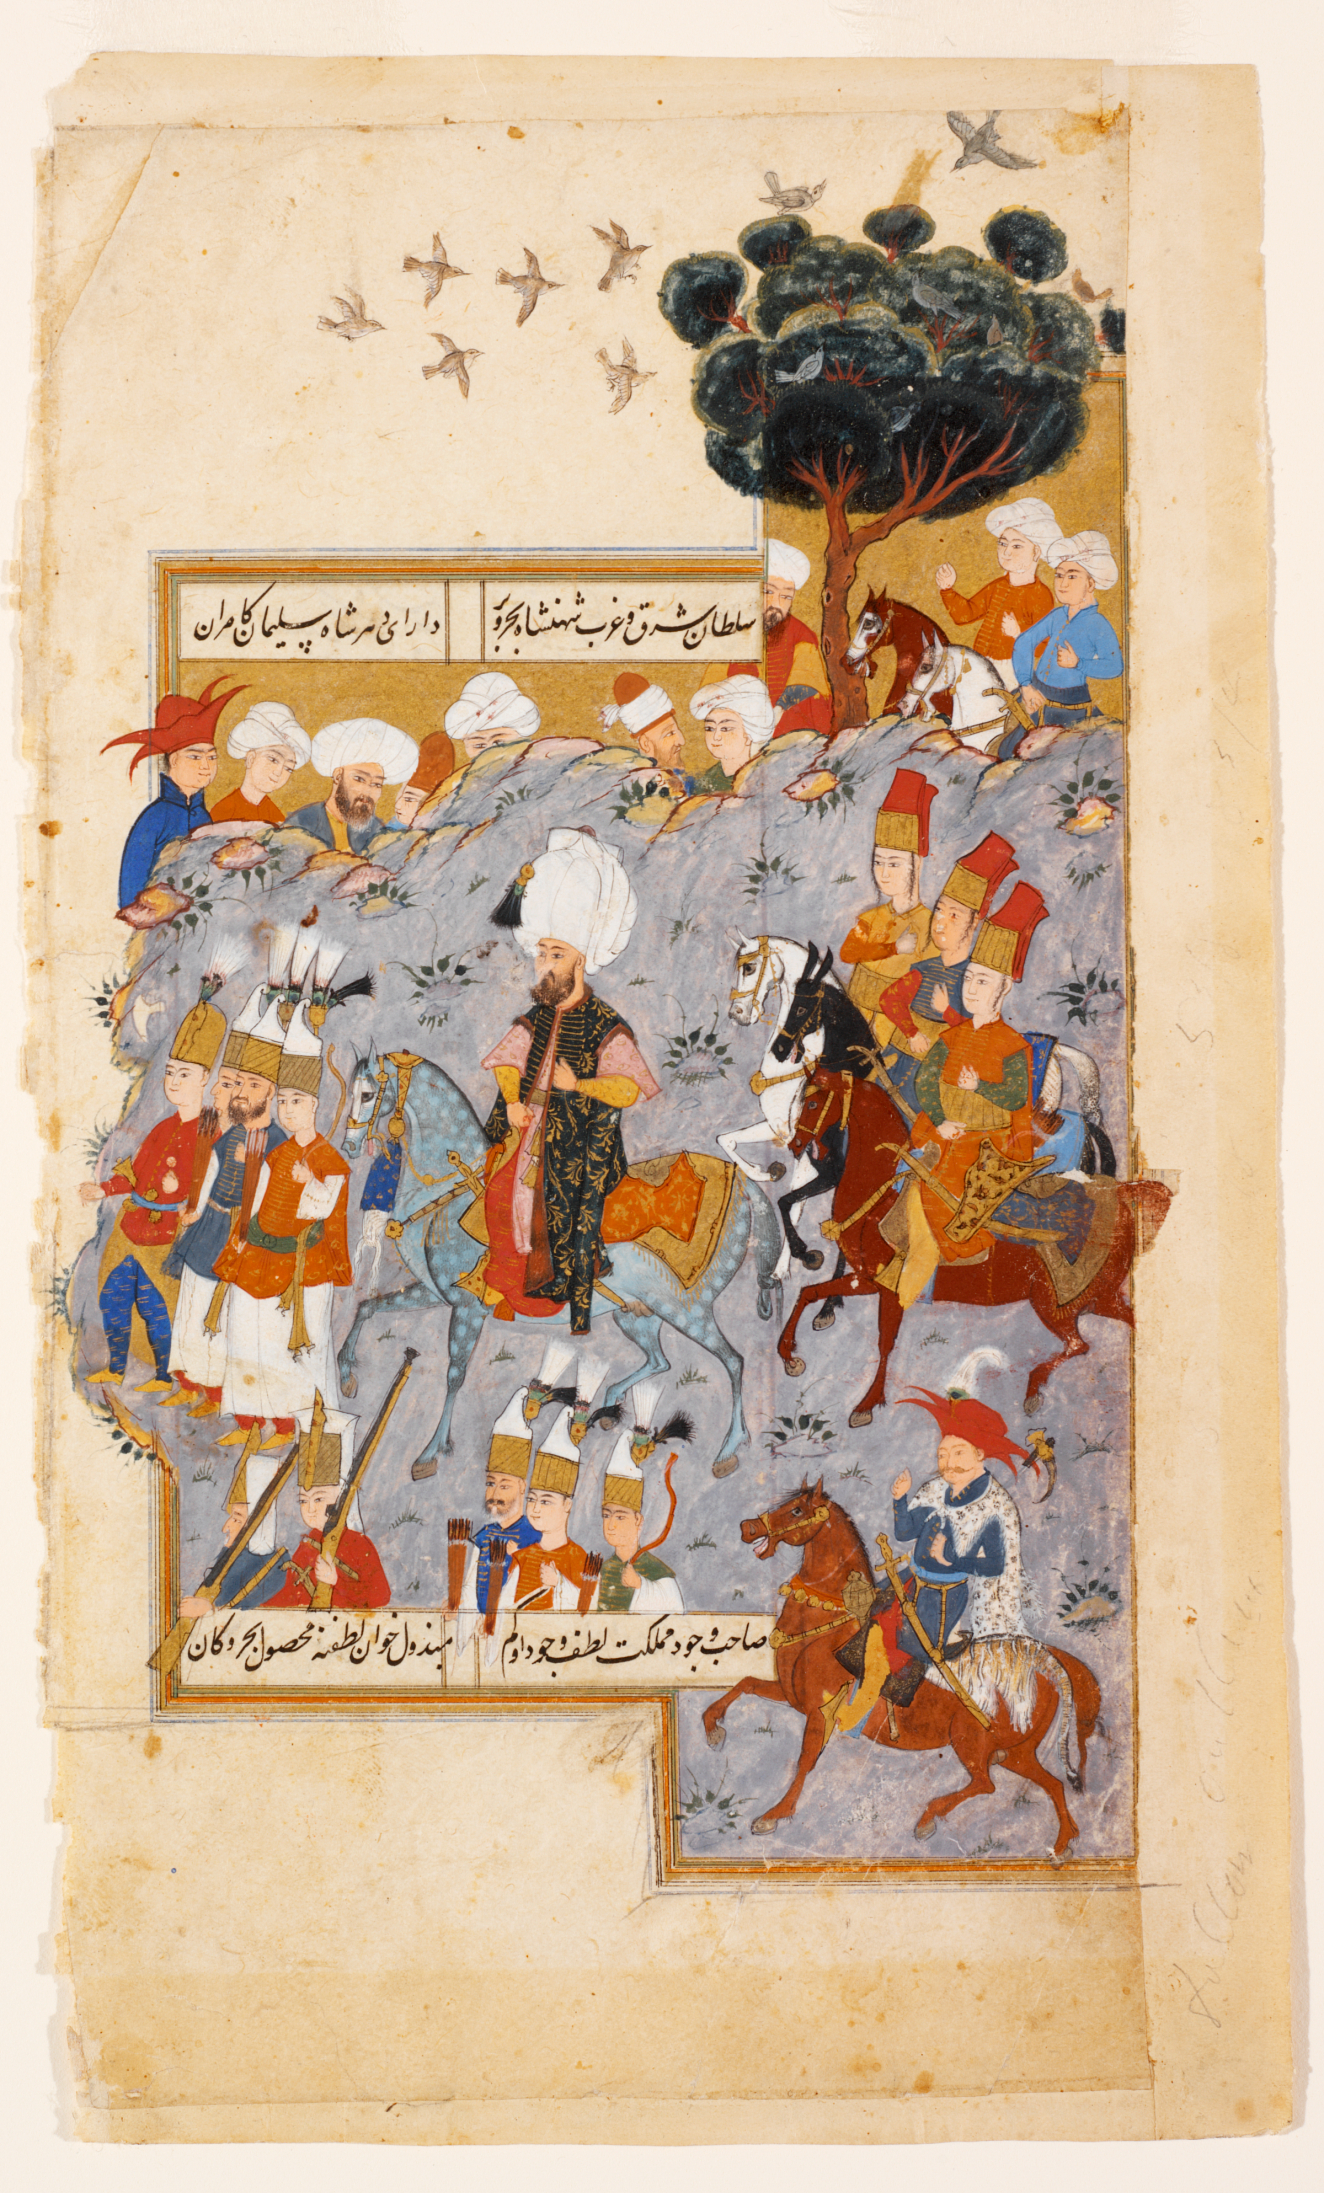 سلطان شرق و غرب شهنشاه بحر و بر
دارای دهر شاه سلیمان کامران
صاحب وجود مملکت لطف وجود
مبذول خوان لطفنه محصول بحر و کان